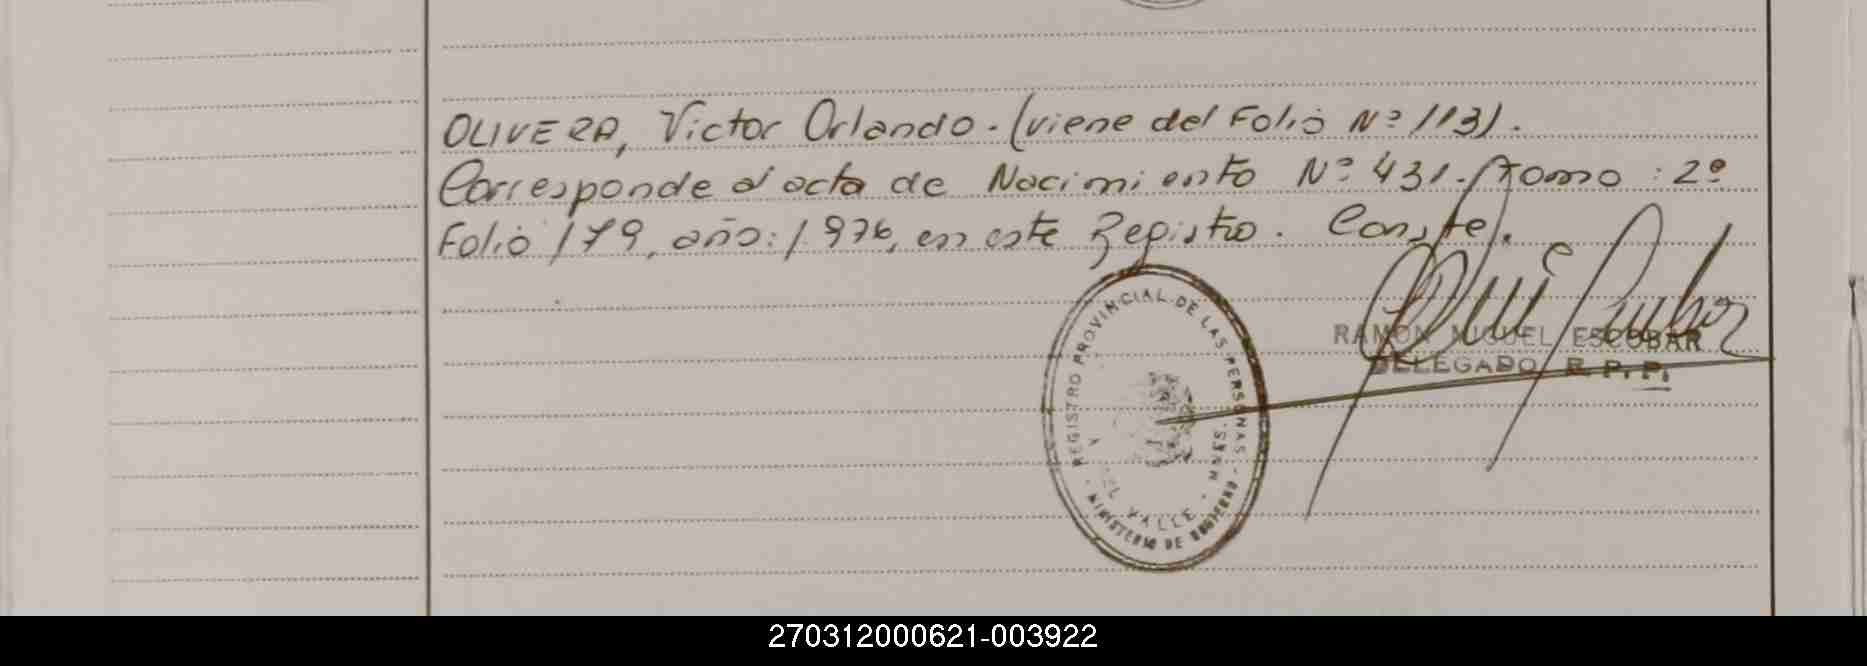 OLIVERA, Victor Orlando. (viene del Folio Nº 113).
Corresponde al acta de Nacimiento Nº 431. Tomo : 2º
Folio 179, año: 1.976, en este Registro. Conste.
RAMON MIGUEL ESCOBAR
DELEGADO R. P. P.
REGISTRO PROVINCIAL DE LAS PERSONAS
MINISTERIO DE GOBIERNO
VALLE
270312000621-003922